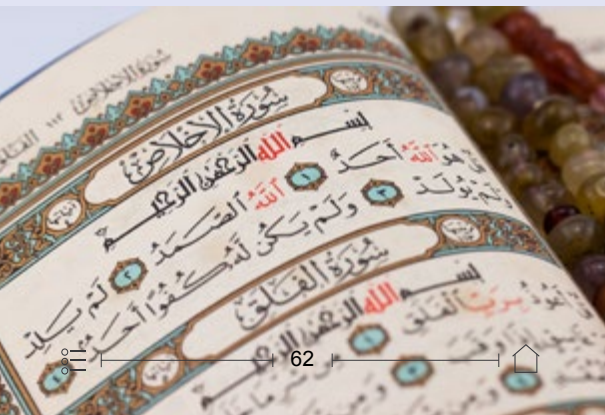 سورة الاخلاص
سُورَةُ الإِخْلَاصِ
بِسْمِ اللَّهِ الرَّحْمَٰنِ الرَّحِيمِ
قُلْ هُوَ اللَّهُ أَحَدٌ ١ اللَّهُ الصَّمَدُ ٢ لَمْ يَلِدْ
وَلَمْ يُولَدْ ٣ وَلَمْ يَكُن لَّهُ كُفُوًا أَحَدٌ ٤
سُورَةُ الفَلَقِ
بِسْمِ اللَّهِ الرَّحْمَٰنِ الرَّحِيمِ
أَعُوذُ بِرَبِّ الْفَلَقِ ١
62